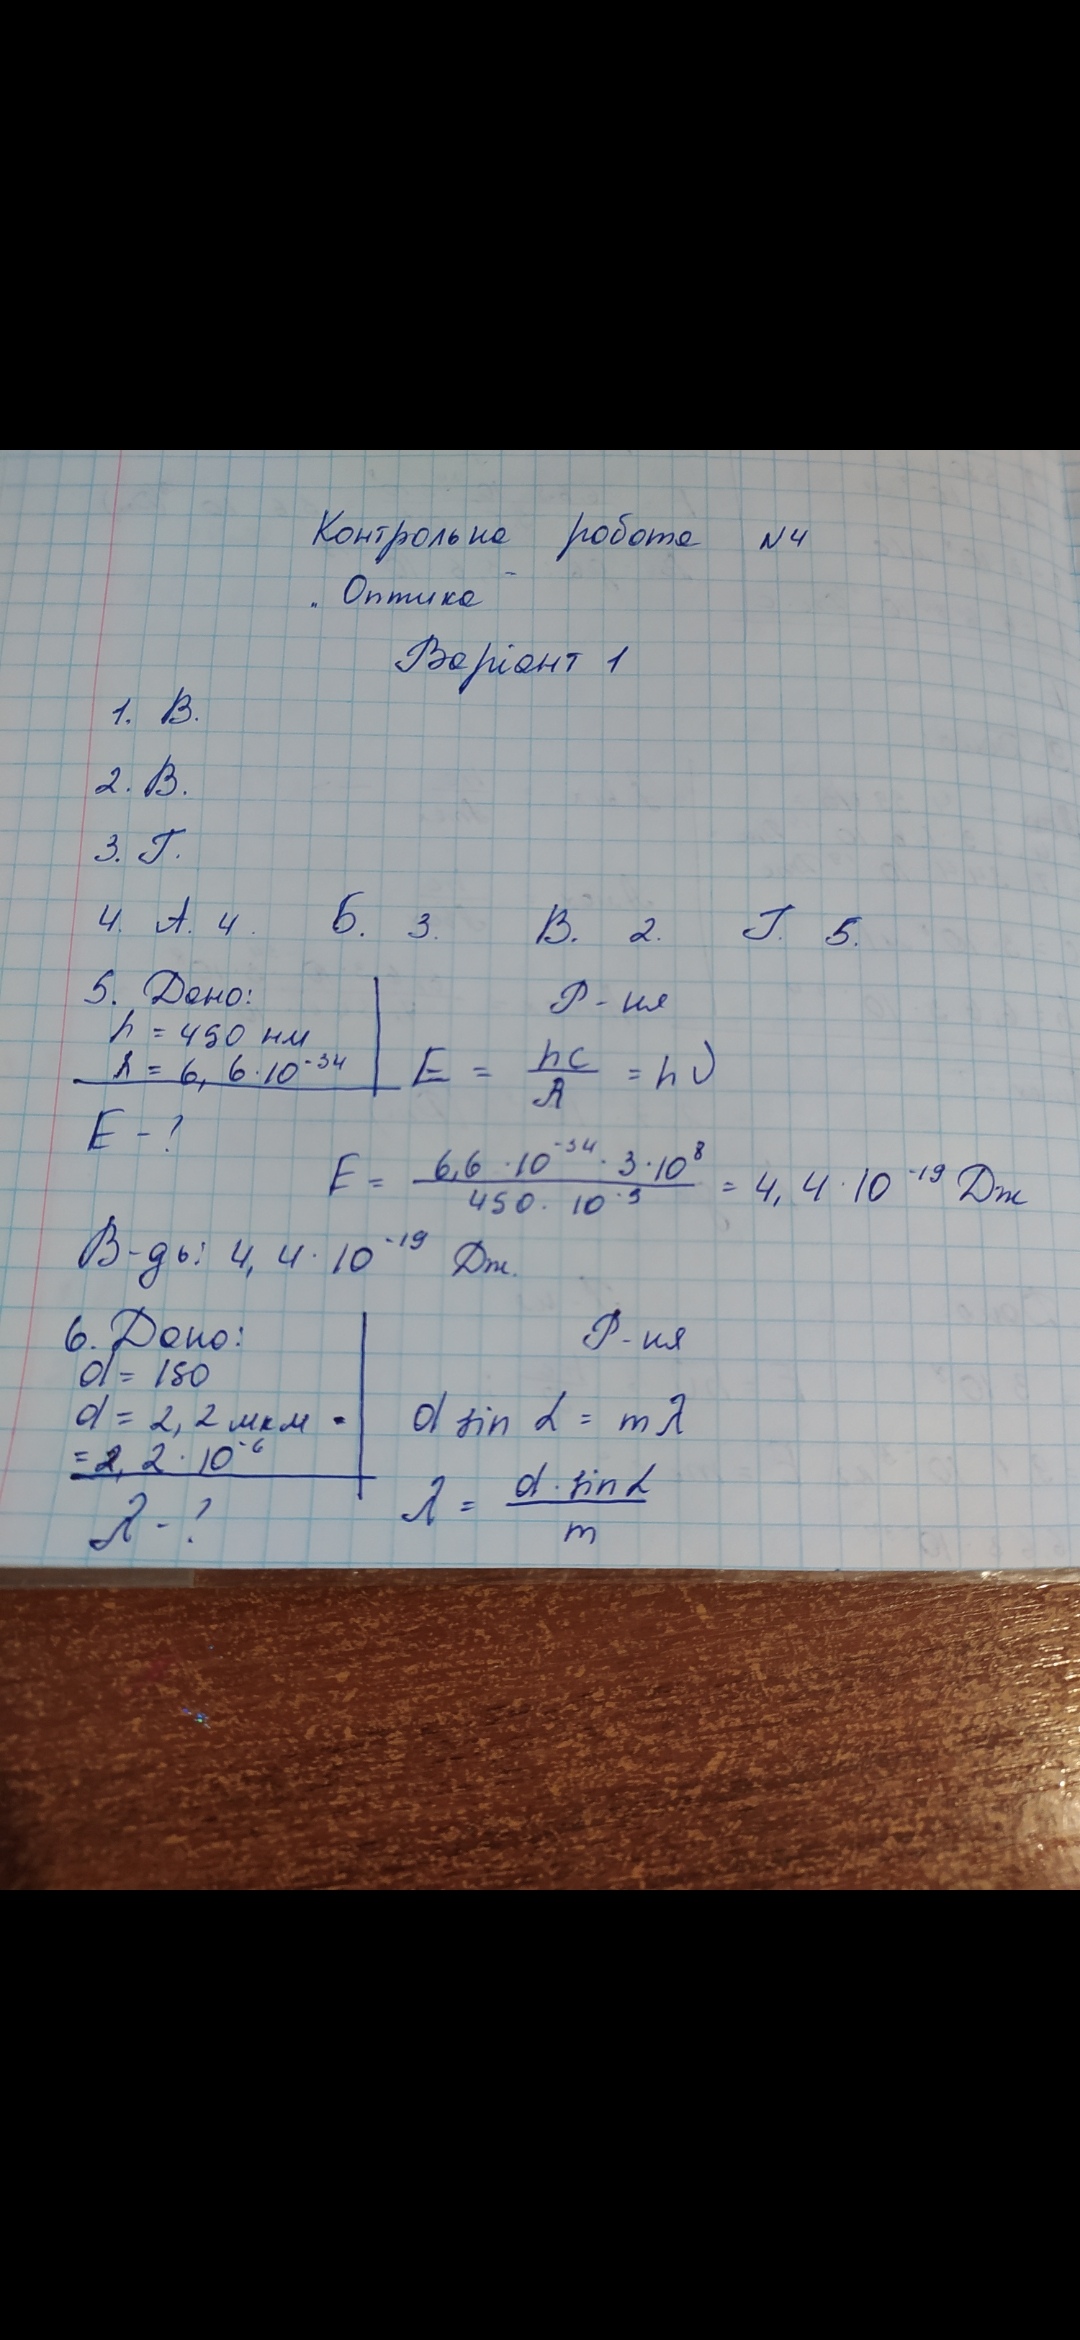 Контрольна робота №4
„Оптика“
Варіант 1
1. В.
2. В.
3. Г.
4. А. 4. Б. 3. В. 2. Г. 5.
5. Дано:
h = 450 нм
λ = 6,6·10⁻³⁴
E - ?
Р-ня
E = hc/λ = hν
E = 6,6·10⁻³⁴·3·10⁸/450·10⁻⁹ = 4,4·10⁻¹⁹ Дж
В-дь: 4,4·10⁻¹⁹ Дж.
6. Дано:
d = 150
d = 2,2 мкм =
= 2,2·10⁻⁶
λ - ?
Р-ня
d sin α = mλ
λ = d·sin α/m